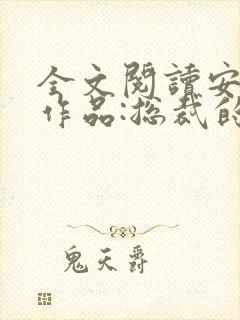 全文閱讀安
作品:总裁的
鬼天爵